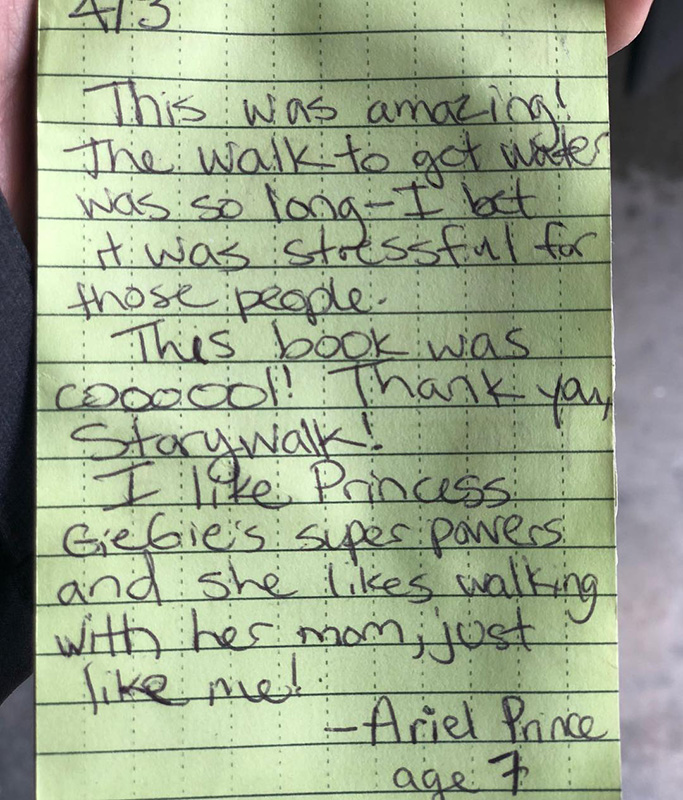 4/3
This was amazing!
The walk to get water
was so long-I bet
it was stressful for
those people.
This book was
coooool! Thank you,
Storywalk!
I like Princess
GieGie's super powers
and she likes walking
with her mom, just
like me!
-Ariel Prince
age 7